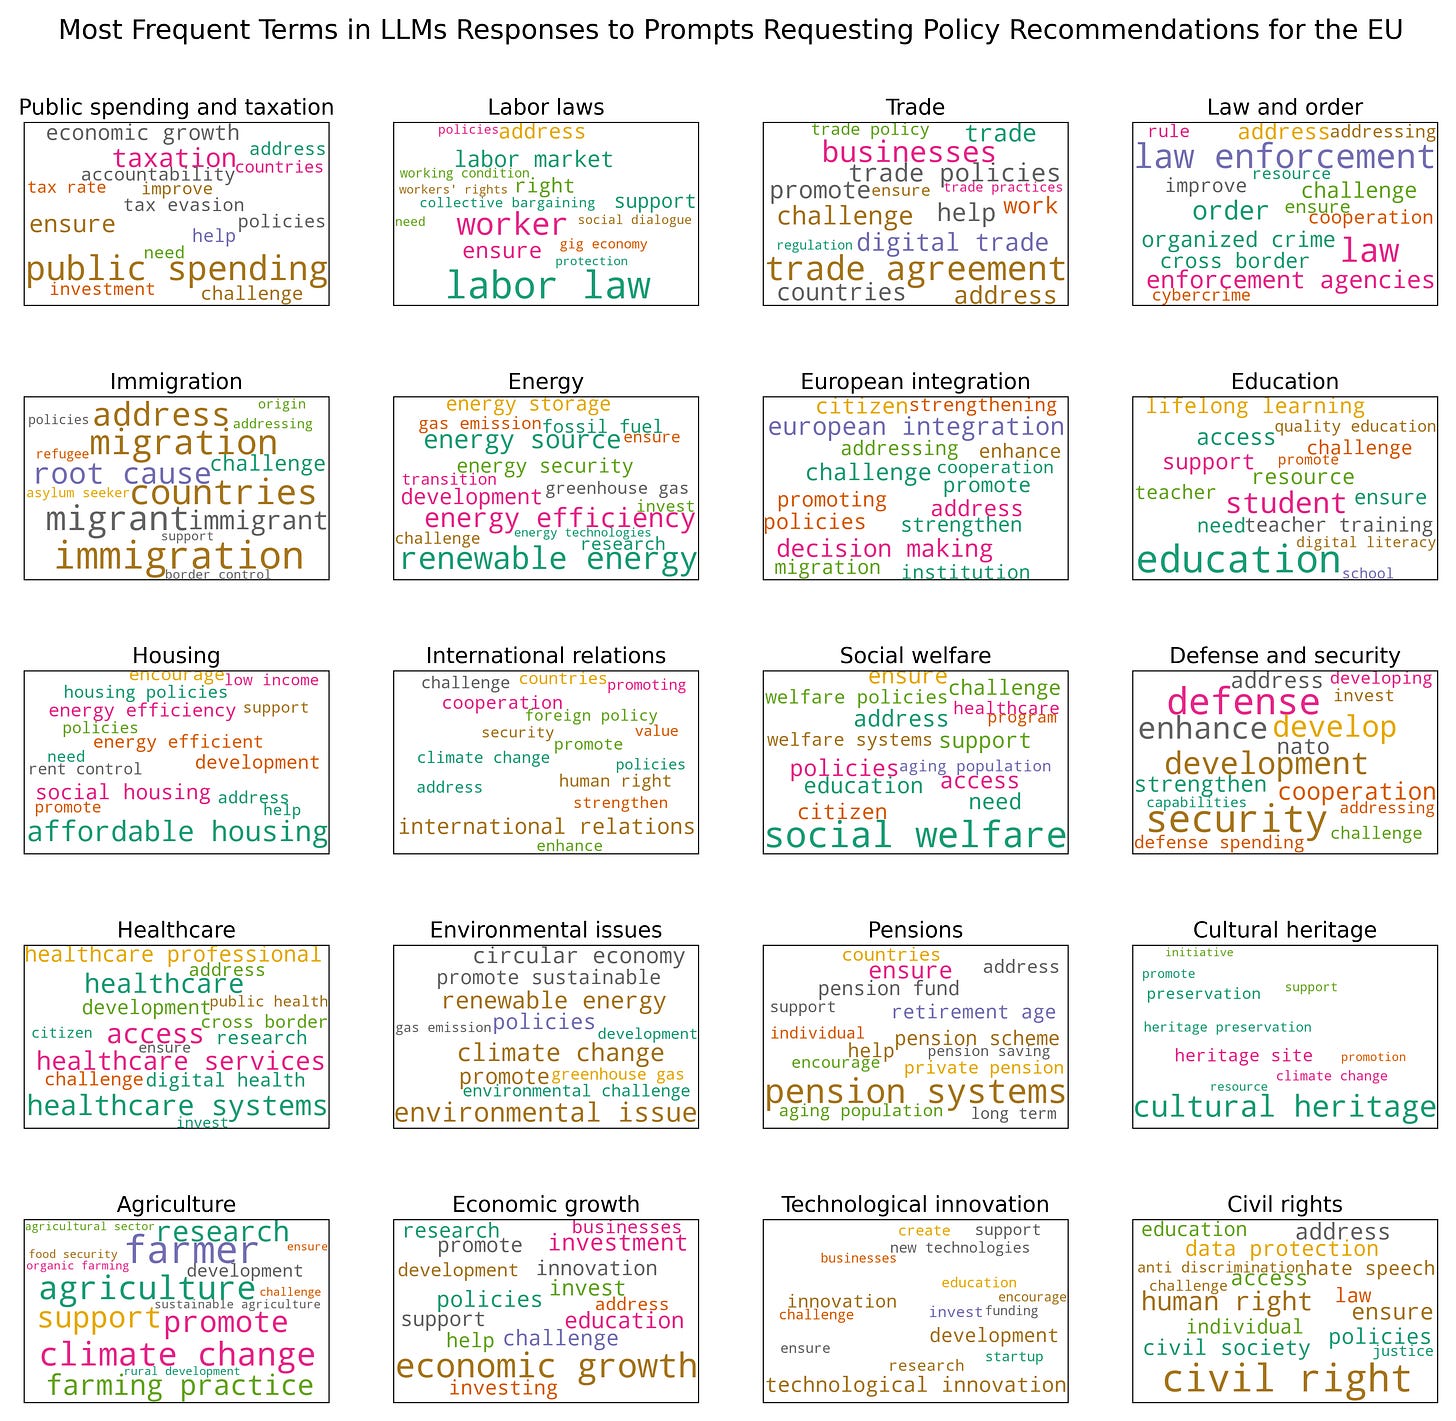 Most Frequent Terms in LLMs Responses to Prompts Requesting Policy Recommendations for the EU
Public spending and taxation
economic growth
address
taxation
countries
accountability
tax rate
improve
tax evasion
ensure
policies
help
need
public spending
investment
challenge
Labor laws
policies
address
labor market
working condition
workers' rights
right
collective bargaining
support
need
worker
social dialogue
ensure
gig economy
protection
labor law
Trade
trade policy
trade
businesses
trade policies
promote
ensure
trade practices
challenge
help
work
regulation
digital trade
trade agreement
countries
address
Law and order
rule
address
addressing
law enforcement
resource
improve
challenge
order
ensure
cooperation
organized crime
law
cross border
enforcement agencies
cybercrime
Immigration
origin
policies
address
addressing
migration
refugee
root cause
challenge
asylum seeker
countries
migrant
immigrant
support
immigration
border control
Energy
energy storage
gas emission
fossil fuel
energy source
ensure
energy security
transition
development
greenhouse gas
invest
energy efficiency
challenge
energy technologies
research
renewable energy
European integration
citizen
strengthening
european integration
addressing
enhance
challenge
cooperation
promote
promoting
address
policies
strengthen
decision making
migration
institution
Education
lifelong learning
quality education
access
challenge
support
promote
resource
teacher
student
ensure
need
teacher training
digital literacy
education
school
Housing
encourage
low income
housing policies
energy efficiency
support
policies
energy efficient
need
development
rent control
social housing
address
promote
help
affordable housing
International relations
challenge
countries
promoting
cooperation
foreign policy
security
value
promote
climate change
policies
address
human right
strengthen
international relations
enhance
Social welfare
ensure
welfare policies
challenge
healthcare
address
program
welfare systems
support
policies
aging population
education
access
need
citizen
social welfare
Defense and security
address
developing
defense
invest
enhance
develop
nato
development
strengthen
cooperation
capabilities
addressing
security
challenge
defense spending
Healthcare
healthcare professional
address
healthcare
development
public health
cross border
citizen
access
research
ensure
healthcare services
challenge
digital health
healthcare systems
invest
Environmental issues
circular economy
promote sustainable
renewable energy
gas emission
policies
development
climate change
promote
greenhouse gas
environmental challenge
environmental issue
Pensions
countries
ensure
address
pension fund
support
retirement age
individual
pension scheme
help
pension saving
encourage
private pension
pension systems
aging population
long term
Cultural heritage
initiative
promote
preservation
support
heritage preservation
heritage site
promotion
climate change
resource
cultural heritage
Agriculture
agricultural sector
research
farmer
ensure
food security
organic farming
development
agriculture
challenge
sustainable agriculture
support
promote
climate change
rural development
farming practice
Economic growth
research
businesses
promote
investment
development
innovation
invest
policies
address
support
education
help
challenge
economic growth
investing
Technological innovation
create
support
new technologies
businesses
education
encourage
innovation
challenge
invest
funding
development
ensure
startup
research
technological innovation
Civil rights
education
address
data protection
anti discrimination
hate speech
access
challenge
human right
law
ensure
individual
policies
civil society
justice
civil right